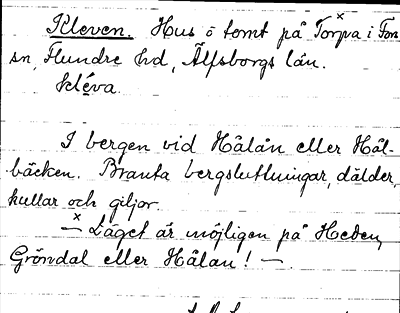 Kleven. Hus ö tomt på Torpa i Fors
sn, Flundre hd, Älfsborgs län.
kléva.
I bergen vid Hålån eller Hål-
bäcken. Branta bergslutningar, dälder,
kullar och giljor.
— Läget är möjligen på Heden,
Gröndal eller Hålan! —.